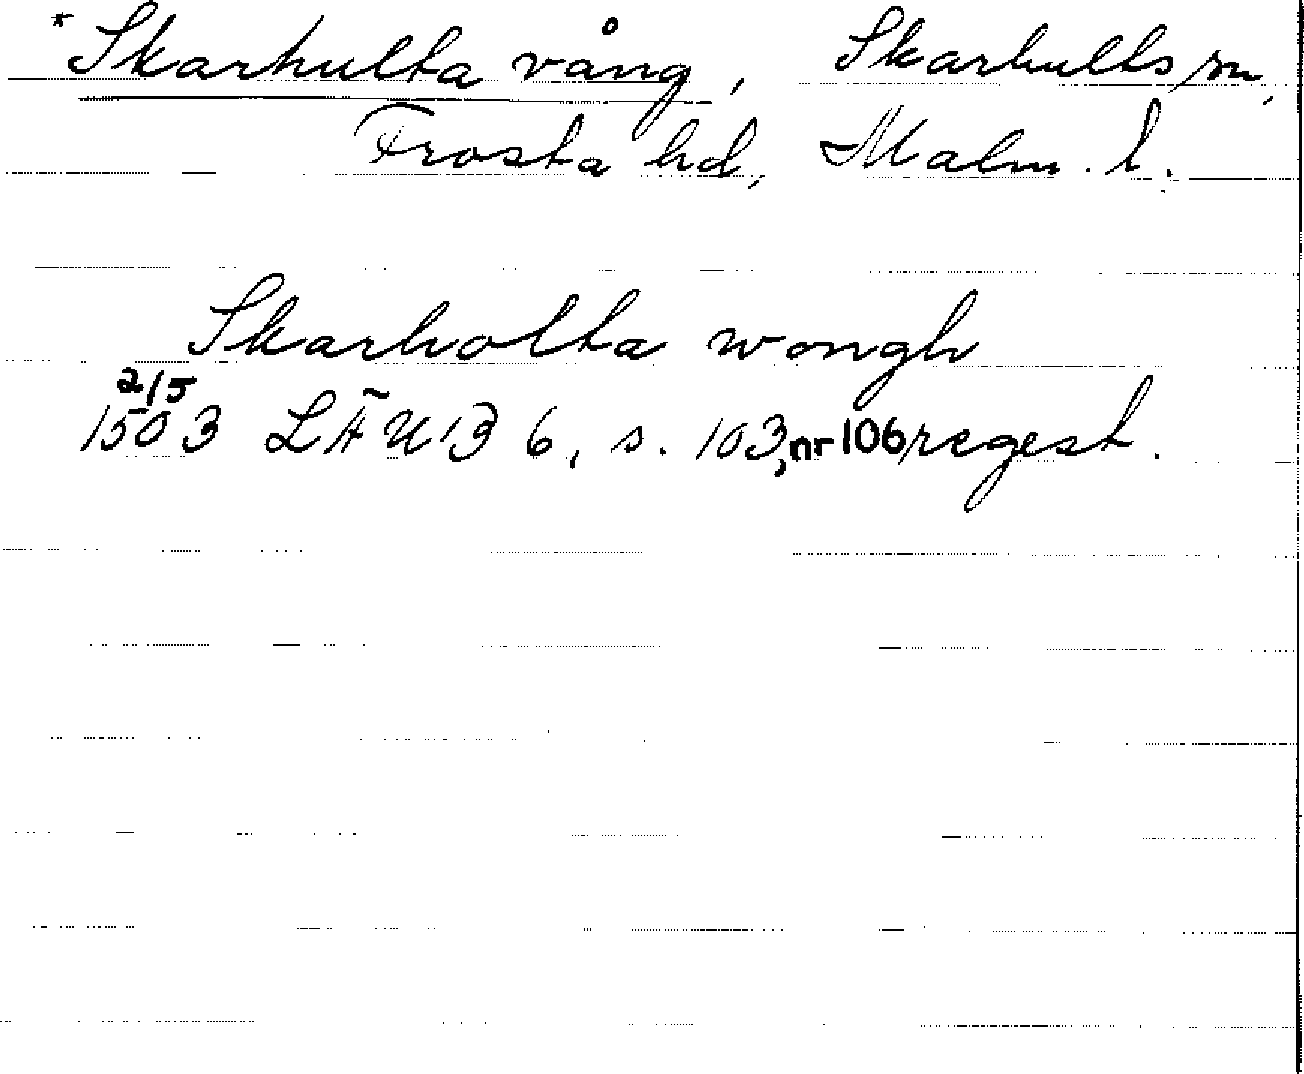 *Skarhulta vång, Skarhults sn,
Frosta hd, Malm. l.
Skarholta wongh
2/5
1503 LÄUB 6, s. 103, nr 106 regest.